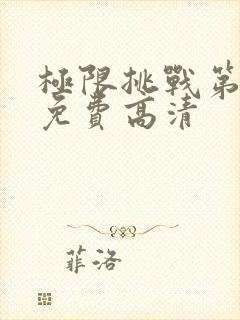 極限挑戰第
免費高清
菲洛